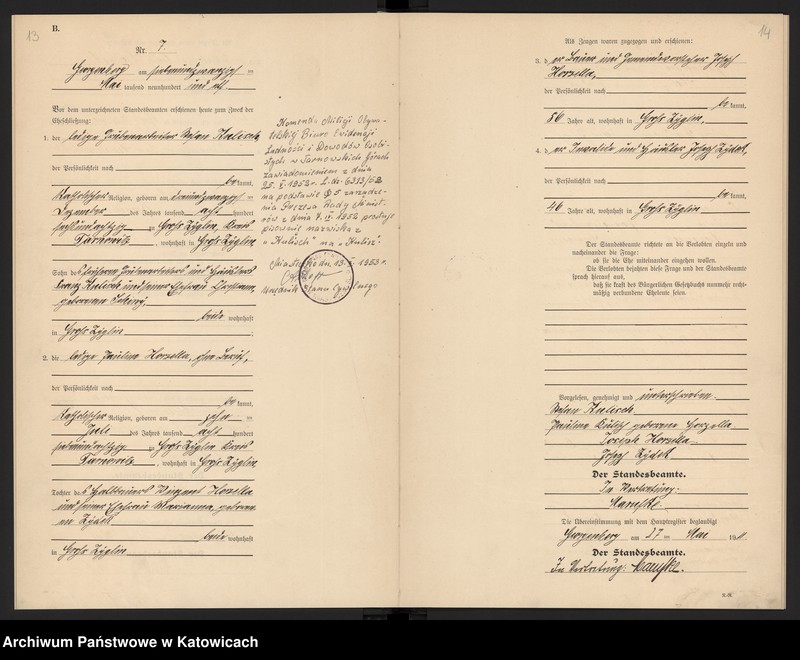 13
B.
Nr. 7.
Georgenberg am siebenundzwanzigsten
Mai tausend neunhundert und elf.
Vor dem unterzeichneten Standesbeamten erschienen heute zum Zweck der
Eheschließung:
1. der ledige Grubenarbeiter Stefan Kulisch,
der Persönlichkeit nach
be kannt,
katholischer Religion, geboren am
Dezember des Jahres tausend acht hundert
sechsundachtzig zu Groß Zyglin, Kreis
Tarnowitz, wohnhaft in Groß Zyglin
Sohn des Grubenarbeiters und Häuslers
Franz Kulisch und seiner Ehefrau
geborenen
beide wohnhaft
in Groß Zyglin
2. die ledige Pauline Horzella, ohne Beruf,
der Persönlichkeit nach
be kannt,
katholischer Religion, geboren am zehn ten
Juli des Jahres tausend acht hundert
siebenundachtzig zu Groß Zyglin Kreis
Tarnowitz, wohnhaft in Groß Zyglin
Tochter des Halbbauers Vinzent Horzella
und seiner Ehefrau Marianna, geborenen
Zydek
beide wohnhaft
in Groß Zyglin
Komenda Milicji Obywa-
telskiej Biuro Ewidencji
Ludności i Dowodów Osobi-
stych w Tarnowskich Górach
zawiadomieniem z dnia
25. I. 1952 r. L.dz. 6313/52
na podstawie § 5 zarządze-
nia Prezesa Rady Minist-
rów z dnia 7. IV 1952 prostuje
pisownię nazwiska z
"Kulisch" na "Kulisz".
Miasteczko dn. 13. 1953 r.
Urzędnik Stanu Cywilnego
14
Als Zeugen waren zugezogen und erschienen:
3. der Bauer und Gemeindevorsteher Joseph
Horzella,
der Persönlichkeit nach
be kannt,
56 Jahre alt, wohnhaft in Groß Zyglin,
4. der Invalide und Häusler Joseph Zydek,
der Persönlichkeit nach
be kannt,
46 Jahre alt, wohnhaft in Groß Zyglin
Der Standesbeamte richtete an die Verlobten einzeln und
nacheinander die Frage:
ob sie die Ehe miteinander eingehen wollen.
Die Verlobten bejahten diese Frage und der Standesbeamte
sprach hierauf aus,
daß sie kraft des Bürgerlichen Gesetzbuchs nunmehr recht-
mäßig verbundene Eheleute seien.
Vorgelesen, genehmigt und unterschrieben.
Stefan Kulisch
Pauline Kulisch geborene Horzella
Joseph Horzella
Josef Zydek
Der Standesbeamte.
In Vertretung:
Die Übereinstimmung mit dem Hauptregister beglaubigt
Georgenberg am 27 ten Mai 1911
Der Standesbeamte.
In Vertretung:
Archiwum Państwowe w Katowicach